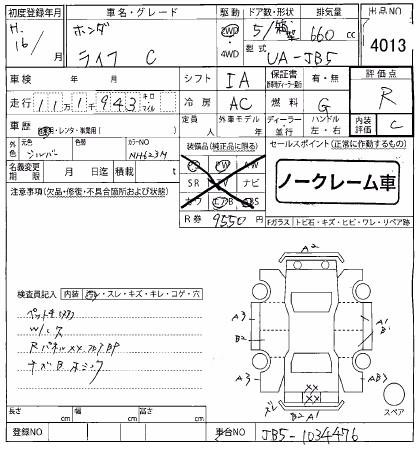 初度登録年月 車名・グレード 駆動 ドア数・形状 排気量 出品NO
H. 16 / 月 ホンダ ライフ C 2WD 4WD 5/箱型 660 cc
型式 UA-JB5 4013
車検 年 月 シフト IA 保証書 有・無 評価点
走行 111,943 キロ マイル 冷房 AC 燃料 G R
車歴 ・レンタ・事業用( ) 定員 人 外車モデル 年 ディーラー 並行 ハンドル 左・右 内装評価 C
外色 元色 シルバー 色替 カラーNO NH623M 装備品(純正品に限る) セールスポイント(正常に作動するもの)
名義変更期限 月 日 月 日迄 積載 t SR TV ナビ
注意事項(欠品・修復・不具合箇所および状態) カワ エアB ABS ノークレーム車
R券 9550 円 Fガラス トビ石・キズ・ヒビ・ワレ・リペア跡
A2
検査員記入 内装 汚レ・スレ・キズ・キレ・コゲ・穴
A3 A1
B2 B1
W/ヒク
A3 A3
XX XX
ズレ B2 A1
スペア
長さ cm 幅 cm 高さ cm
登録NO 車台NO JB5-1034476